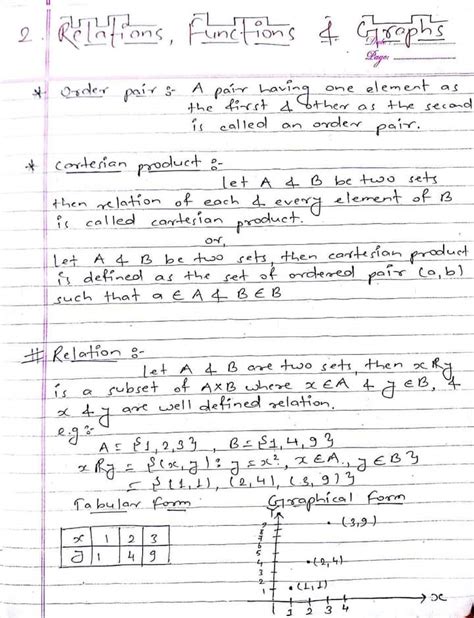 2. Relations, Functions & Graphs
Page:
* Order pair :- A pair having one element as
the first & other as the second
is called an order pair.
* Cartesian product :-
let A & B be two sets
then relation of each & every element of B
is called cartesian product.
or,
Let A & B be two sets, then cartesian product
is defined as the set of ordered pair (a,b)
such that a ∈ A & B ∈ B
# Relation :-
let A & B are two sets, then x R y
is a subset of A×B where x ∈ A & y ∈ B, &
x & y are well defined relation.
e.g :-
A = {1, 2, 3} , B = {1, 4, 9}
x R y = {(x, y) : y = x², x ∈ A, y ∈ B}
= {(1,1), (2,4), (3,9)}
Tabular form Graphical form
x 1 2 3
y 1 4 9
(3,9)
(2,4)
(1,1)
9
8
7
6
5
4
3
2
1
1 2 3 4
x